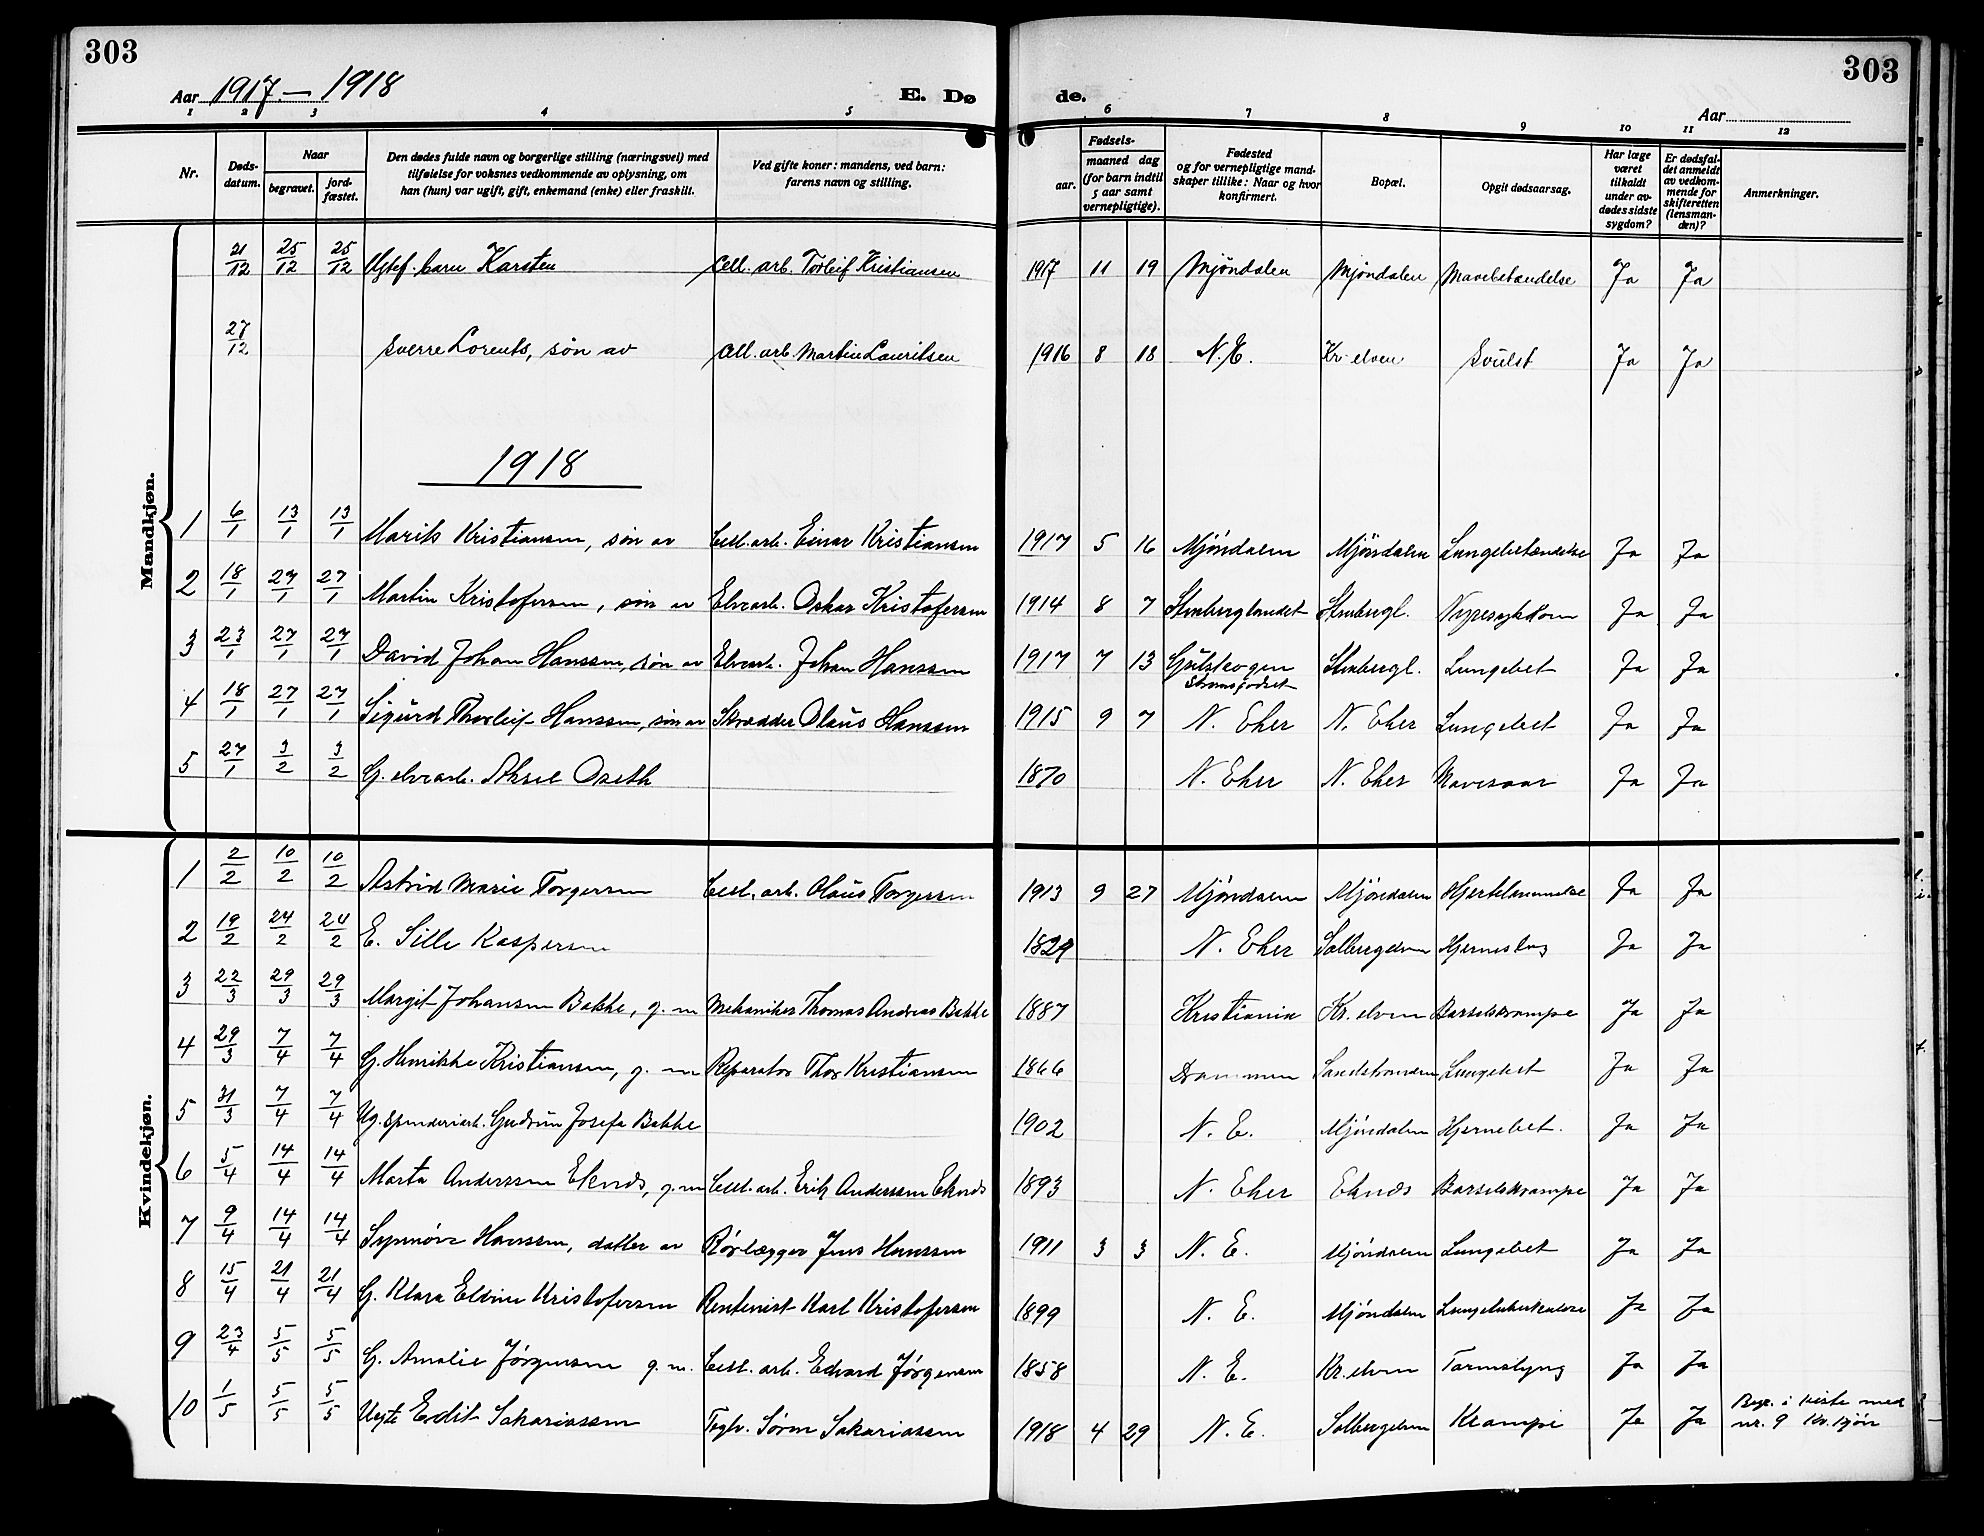 303
303
Aar 1917 – 1918
E. Dø
de.
Aar
1 2 3 4 5 6 7 8 9 10 11 12
Nr.
Døds-
datum.
Naar
begravet.
jord-
fæstet.
Den dødes fulde navn og borgerlige stilling (næringsvei) med
tilføielse for voksnes vedkommende av oplysning, om
han (hun) var ugift, gift, enkemand (enke) eller fraskilt.
Ved gifte koner: mandens, ved barn:
farens navn og stilling.
Fødsels-
aar.
maaned dag
(for barn indtil
5 aar samt
vernepligtige).
Fødested
og for vernepligtige mand-
skaper tillike: Naar og hvor
konfirmert.
Bopæl.
Opgit dødsaarsag.
Har læge
været
tilkaldt
under av-
dødes sidste
sygdom?
Er dødsfal-
det anmeldt
av vedkom-
mende for
skifteretten
(lensman-
den)?
Anmerkninger.
Mandkjøn.
21/12 25/12 25/12 Ugtef. barn Karsten Cell. arb. Torleif Kristiansen 1917 11 19 Mjöndalen Mjöndalen Mavebetændelse Ja Ja
27/12 Sverre Lorents, søn av Cell. arb. Martin Lauritsen 1916 8 18 N.E. Kr-elven Svulst Ja Ja
1918
1 6/1 13/1 13/1 Marik Kristiansen, søn av Cell. arb. Einar Kristiansen 1917 5 16 Mjöndalen Mjöndalen Lungebetændelse Ja Ja
2 18/1 27/1 27/1 Martin Kristofersen, søn av Elvearb. Oskar Kristofersen 1914 8 7 Stenberglandet Stenbergl. Nyresykdom Ja Ja
3 23/1 27/1 27/1 David Johan Hanssen, søn av Elvearb. Johan Hanssen 1917 7 13 Gulskogen Stenbergl. Lungebet Ja Ja
Strømsgodset
4 18/1 27/1 27/1 Sigurd Thorleif Hanssen, søn av Skrædder Olaus Hanssen 1915 9 7 N. Eker N. Eker Lungebet Ja Ja
5 27/1 3/2 3/2 G. elvearb. Aksel Oseth 1870 N. Eker N. Eker Mavesaar Ja Ja
Kvindekjøn.
1 2/2 10/2 10/2 Astrid Marie Torgersen Cell. arb. Olaus Torgersen 1913 9 27 Mjöndalen Mjöndalen Hjertelammelse Ja Ja
2 19/2 24/2 24/2 E. Sille Kaspersen 1829 N. Eker Solbergelven Hjerneslag Ja Ja
3 22/3 29/3 29/3 Margit Johansen Bakke, g. m Mekaniker Thomas Andreas Bakke 1887 Kristiania Kr. elven Barselskrampe Ja Ja
4 29/3 7/4 7/4 G. Henrikke Kristiansen, g. m Reparatør Thor Kristiansen 1866 Drammen Sandstranden Lungebet Ja Ja
5 31/3 7/4 7/4 Ug. spinderiarb. Gudrun Josefa Bakke 1902 N. E. Mjöndalen Hjernebet. Ja Ja
6 5/4 14/4 14/4 Marta Anderssen Eknes, g. m Cell. arb. Erik Anderssen Eknes 1893 N. Eker Eknes Barselskrampe Ja Ja
7 9/4 14/4 14/4 Synnöve Hanssen, datter av Rörlægger Jens Hanssen 1911 3 3 N. E. Mjöndalen Lungebet Ja Ja
8 15/4 21/4 21/4 G. Klara Elvine Kristofersen Rentenist Karl Kristofersen 1899 N. E. Mjöndalen Lungetuberkulose Ja Ja
9 23/4 5/5 5/5 G. Amalie Jörgensen g. m. Cell. arb. Edvard Jörgensen 1858 N. E. Kr. elven Tarmslyng Ja Ja
10 1/5 5/5 5/5 Uegte Edit Sakariassen Teglv. Sören Sakariassen 1918 4 29 N. E. Solbergelven Krampe Ja Ja Begr. i kiste med
nr. 9 Kv.kjön